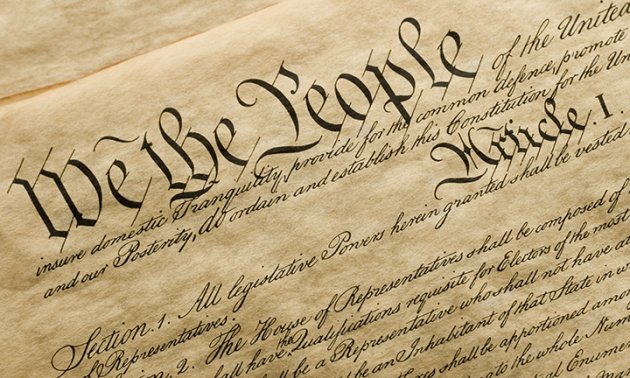 We the People of the United
insure domestic Tranquility, provide for the common defence, promote
and our Posterity, do ordain and establish this Constitution for the Un
Article. I.
Section. 1. All legislative Powers herein granted shall be vested
of Representatives.
2. The House of Representatives shall be composed of
shall have the Qualifications requisite for Electors of the most
shall be a Representative who shall not have at
be an Inhabitant of that State in w
shall be apportioned amon
to the whole Num
Enumer